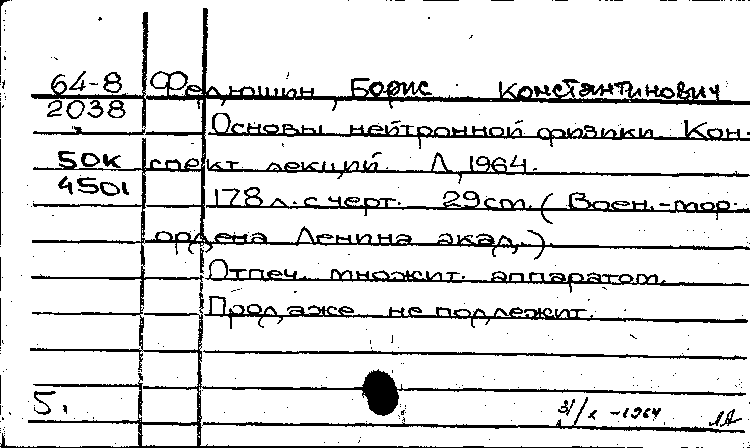 64-8 Федюшин, Борис Константинович
2038 Основы нейтронной физики. Кон-
50К спект лекций. Л, 1964.
4501 178 л. с черт. 29 см. (Воен.-мор.
ордена Ленина акад.).
Отпеч. множит. аппаратом.
Продаже не подлежит.
5.
31/X -1964